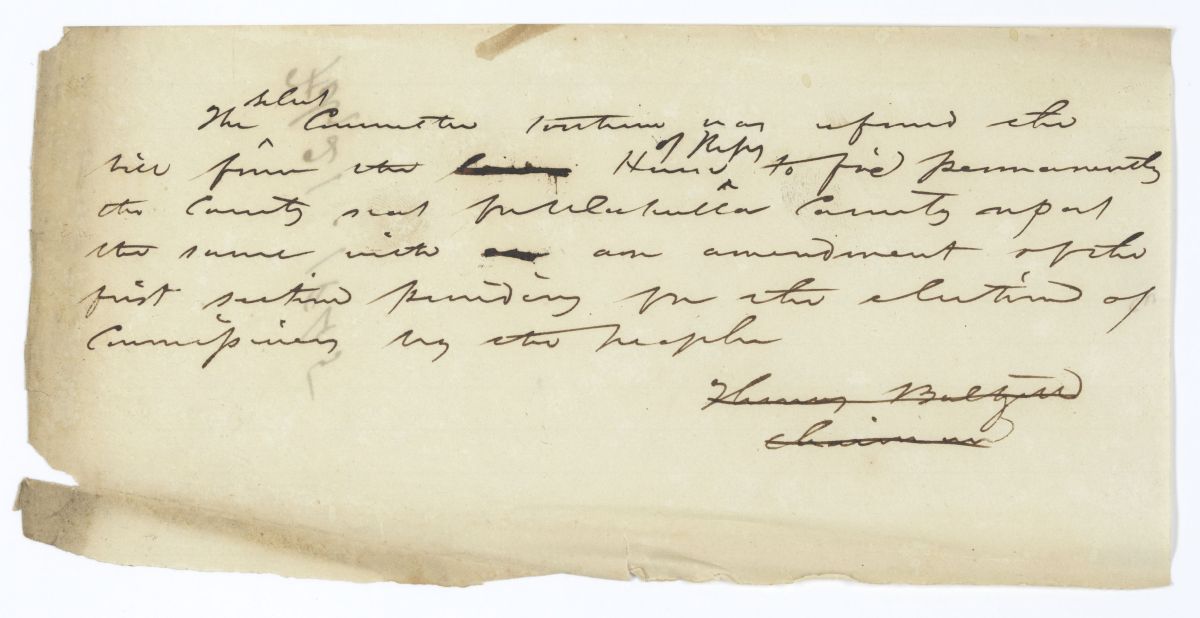 The select Committee to whom was referred the
bill from the House of Reps to fix permanently
the County seat for Wakulla County report
the same with an amendment of the
first section providing for the election of
Commissioners by the people
Thomas Baltzell
Chairman